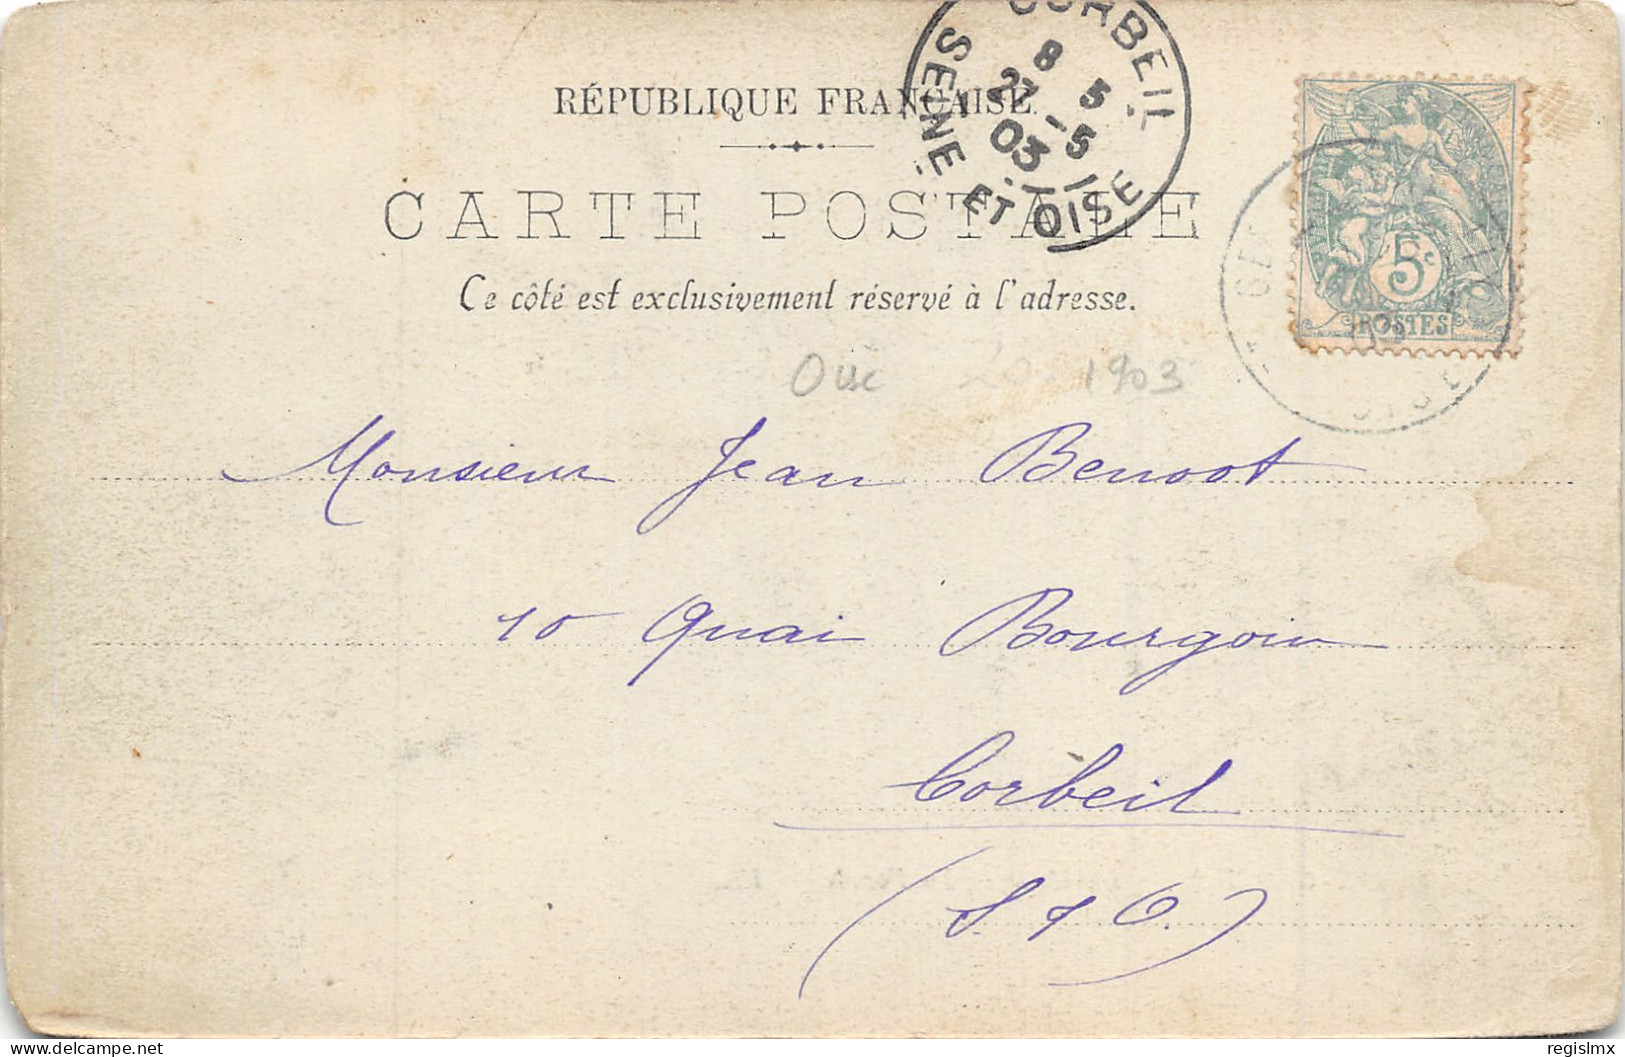 CORBEIL
8 5
27 - 5
03
SEINE ET OISE
RÉPUBLIQUE FRANÇAISE
CARTE POSTALE
Ce côté est exclusivement réservé à l'adresse.
5c
POSTES
Oise 1903
Monsieur Jean Benoot
10 Quai Bourgoin
Corbeil
(S. & O.)
www.delcampe.net
regislmx